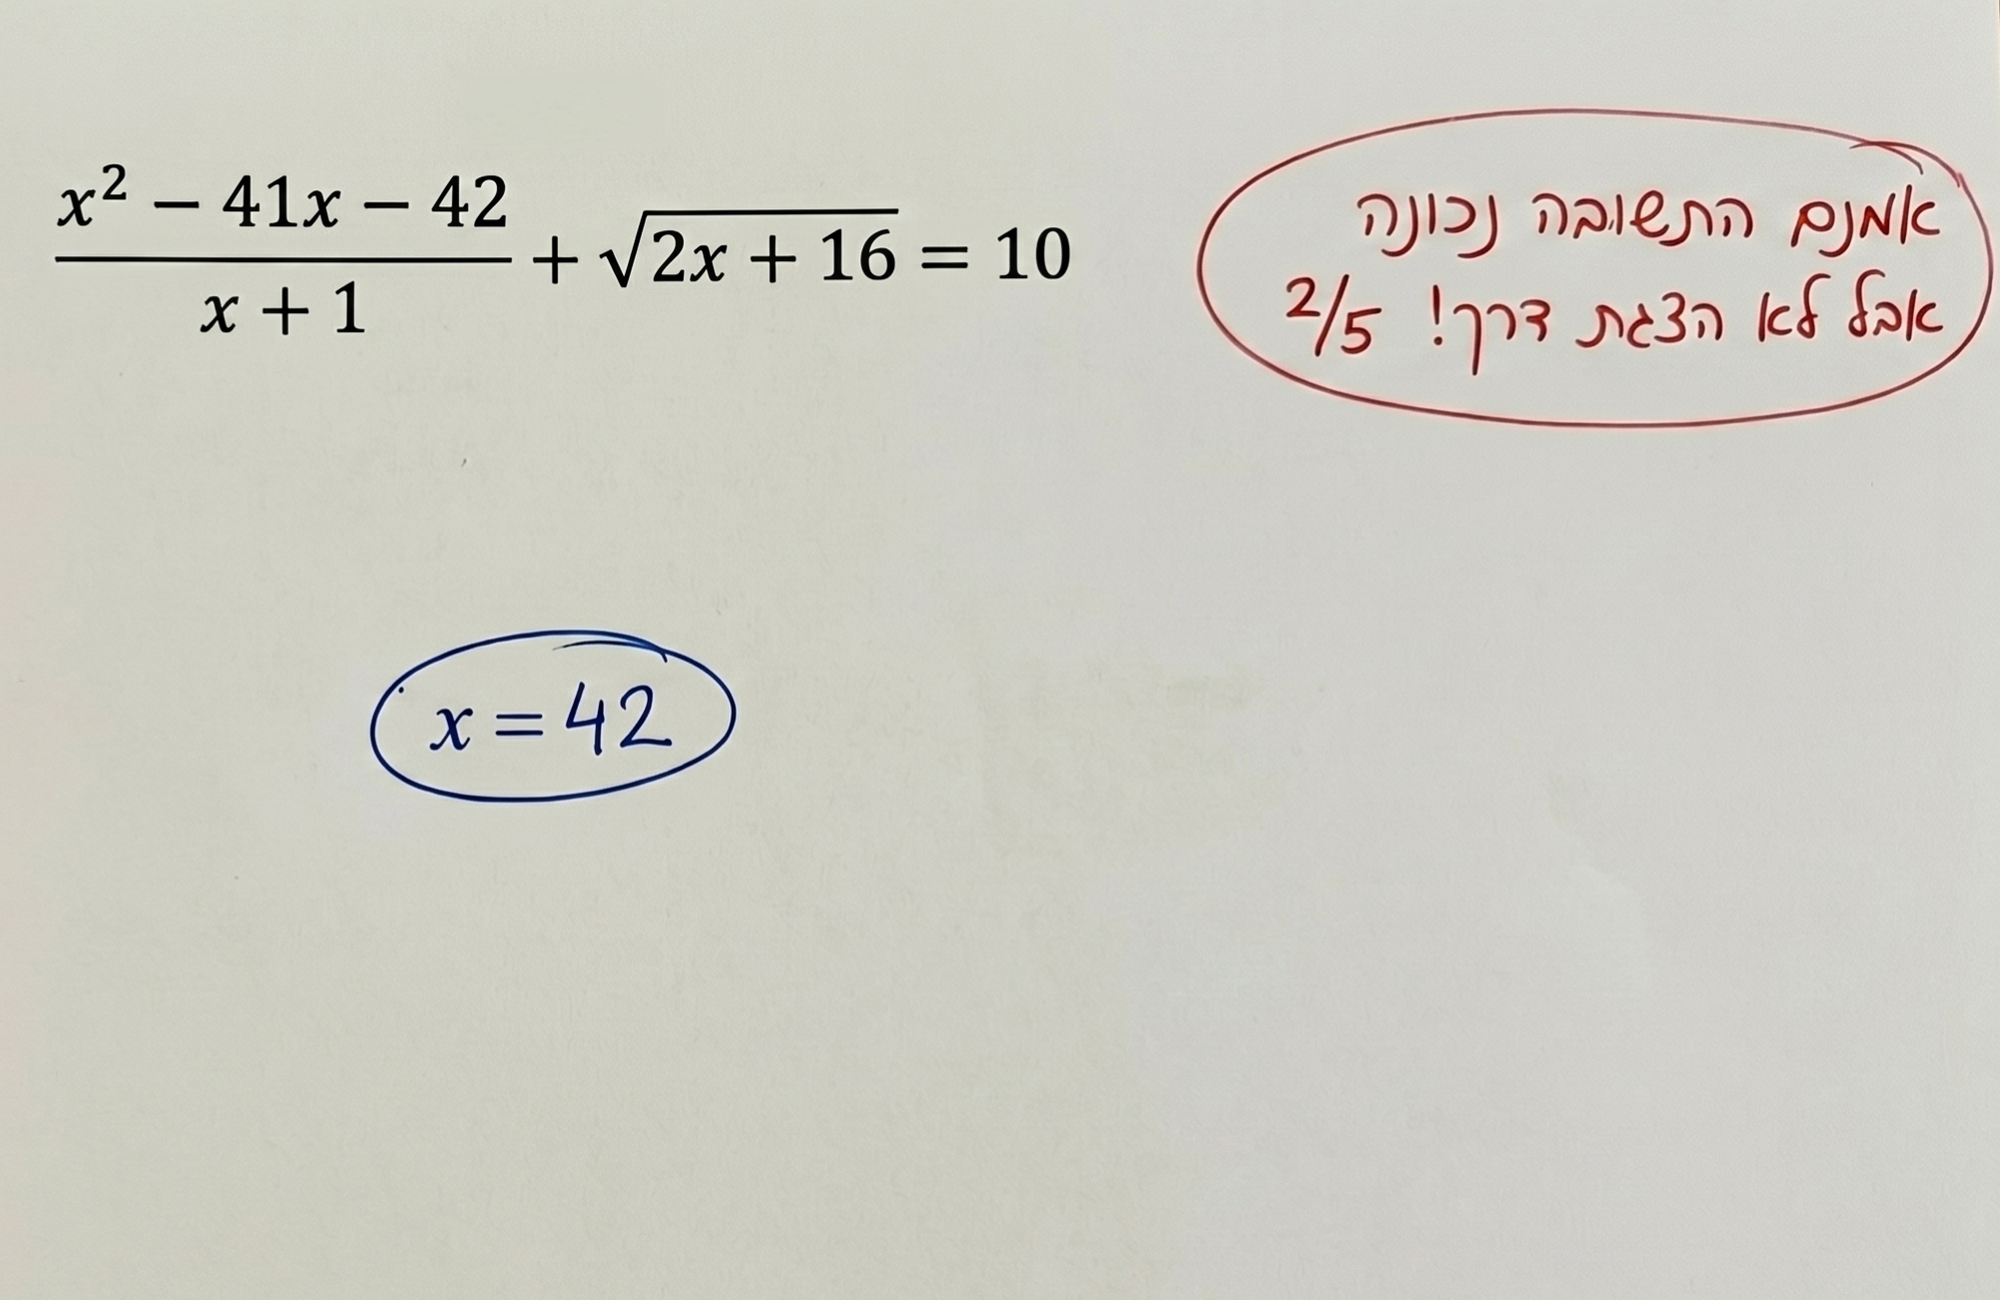 (x² − 41x − 42)/(x + 1) + √(2x + 16) = 10
אמנם התשובה נכונה
אבל לא הצגת דרך! 2/5
x = 42